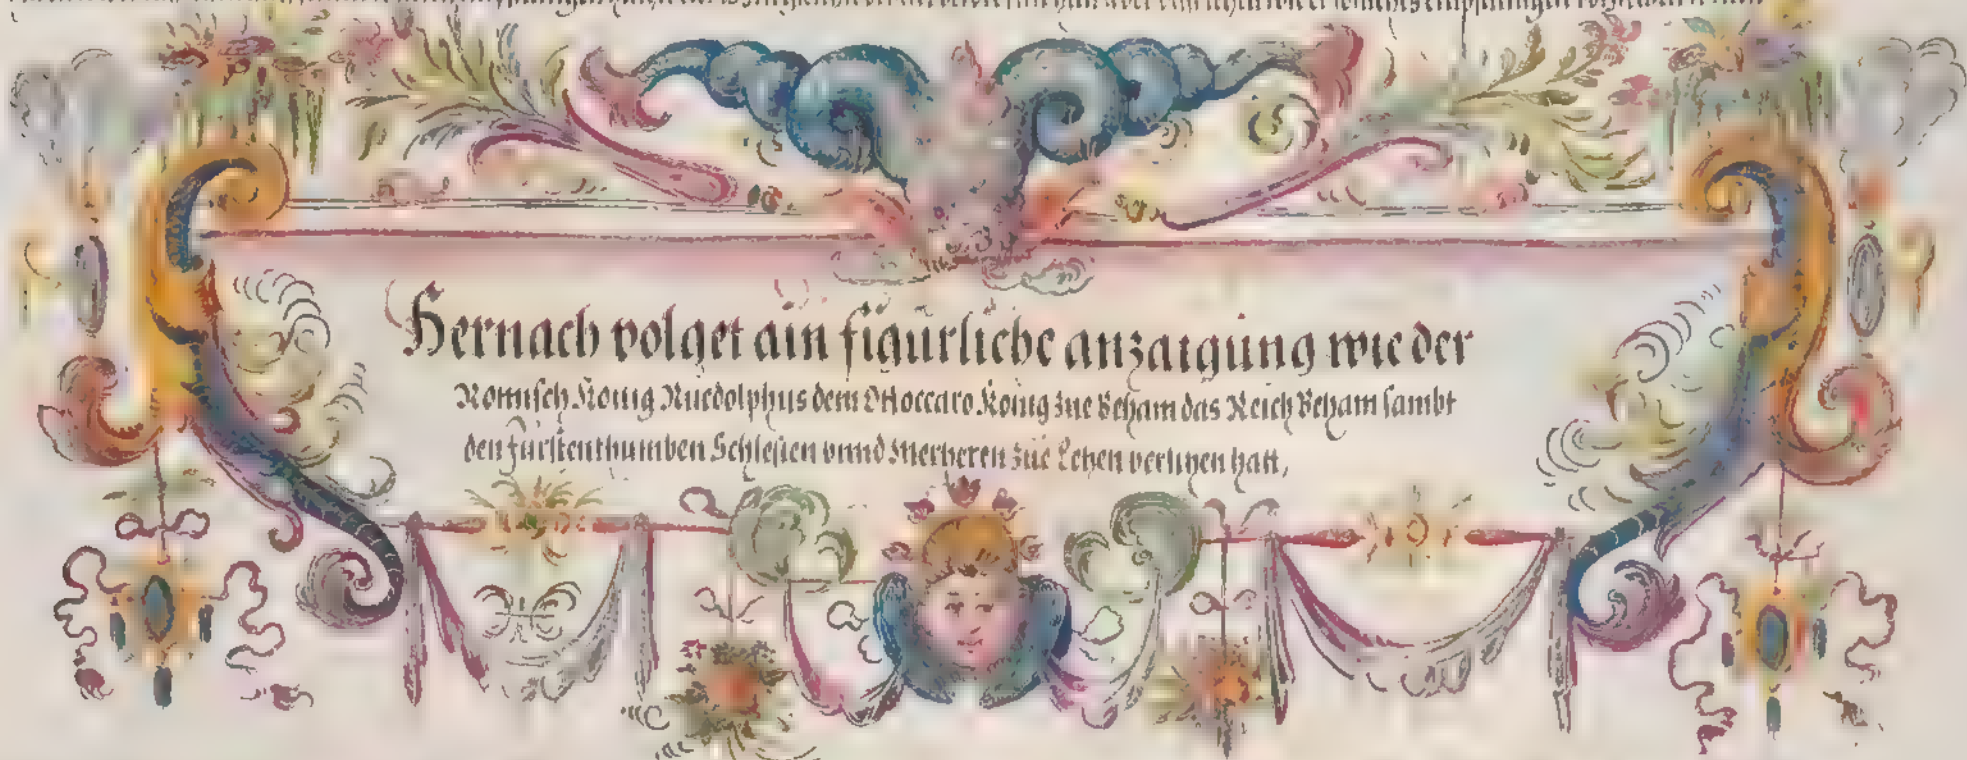 Hernach volget ain figurliche anzaigung wie der
Romisch Konig Ruedolphus dem Ottoccaro Konig zue Beham das Reich Beham sambt
den furstenthumben Schlesien vnnd Merheren zue Lehen verlihen hatt,